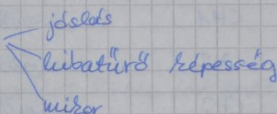 jóslás
hibatűrő képesség
mikor